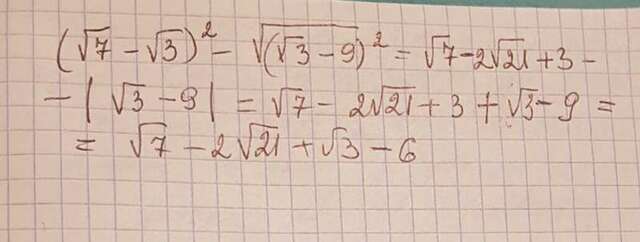 (√7 − √3)² − √(√3 − 9)² = √7 − 2√21 + 3 −
− | √3 − 9 | = √7 − 2√21 + 3 + √3 − 9 =
= √7 − 2√21 + √3 − 6